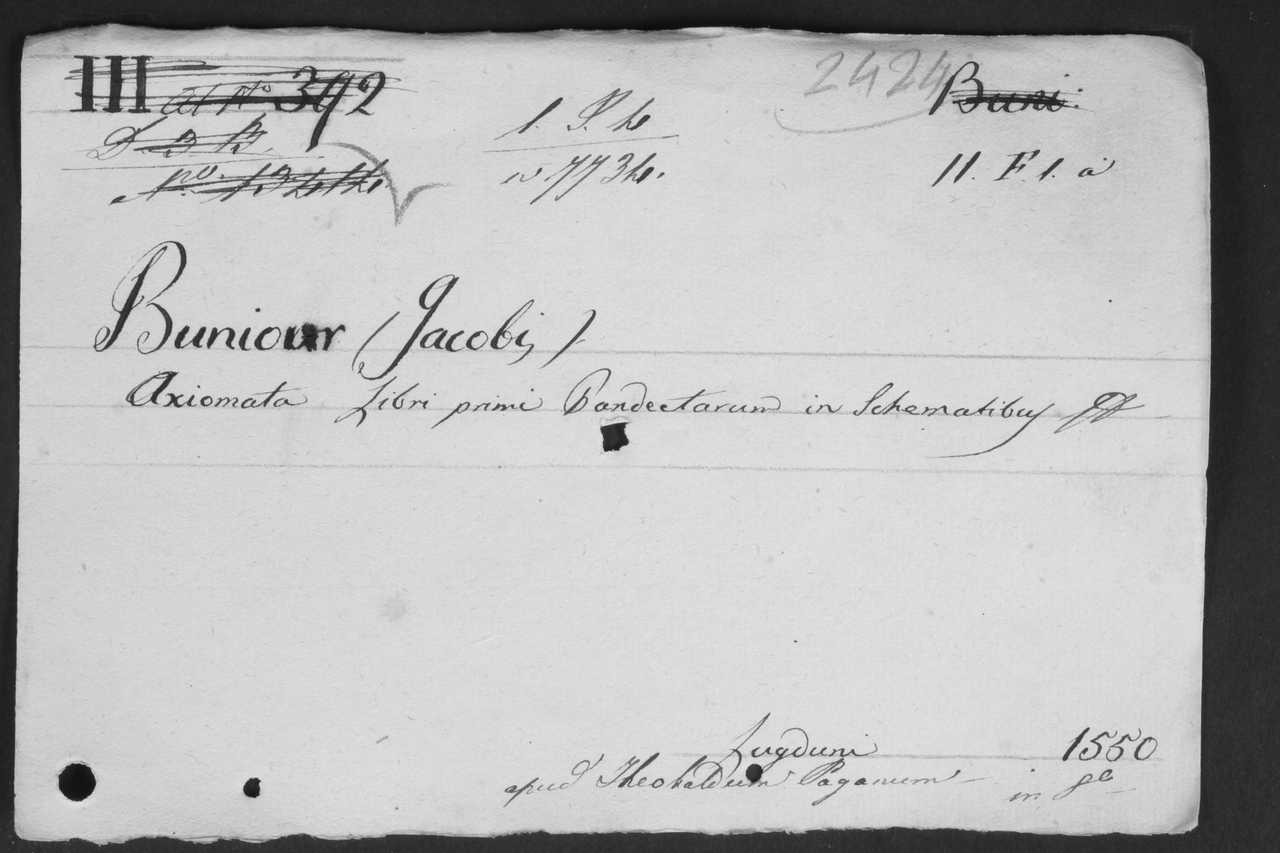 III 392
2424
Buni.
1. P. h
11. F. 1. a
Buniour (Jacobi)
Axiomata Libri primi Pandectarum in Schematibus
Lugduni 1550
apud Theobaldum Paganum in 8o